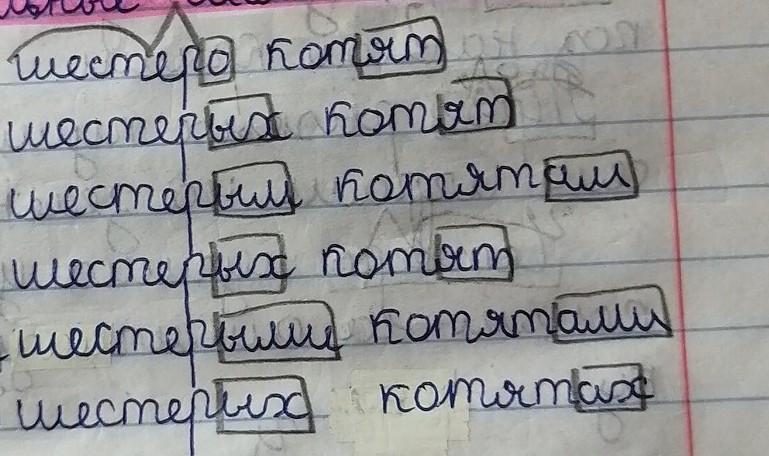 шестеро котят
шестерых котят
шестерым котятам
шестерых котят
шестерыми котятами
шестерых котятах